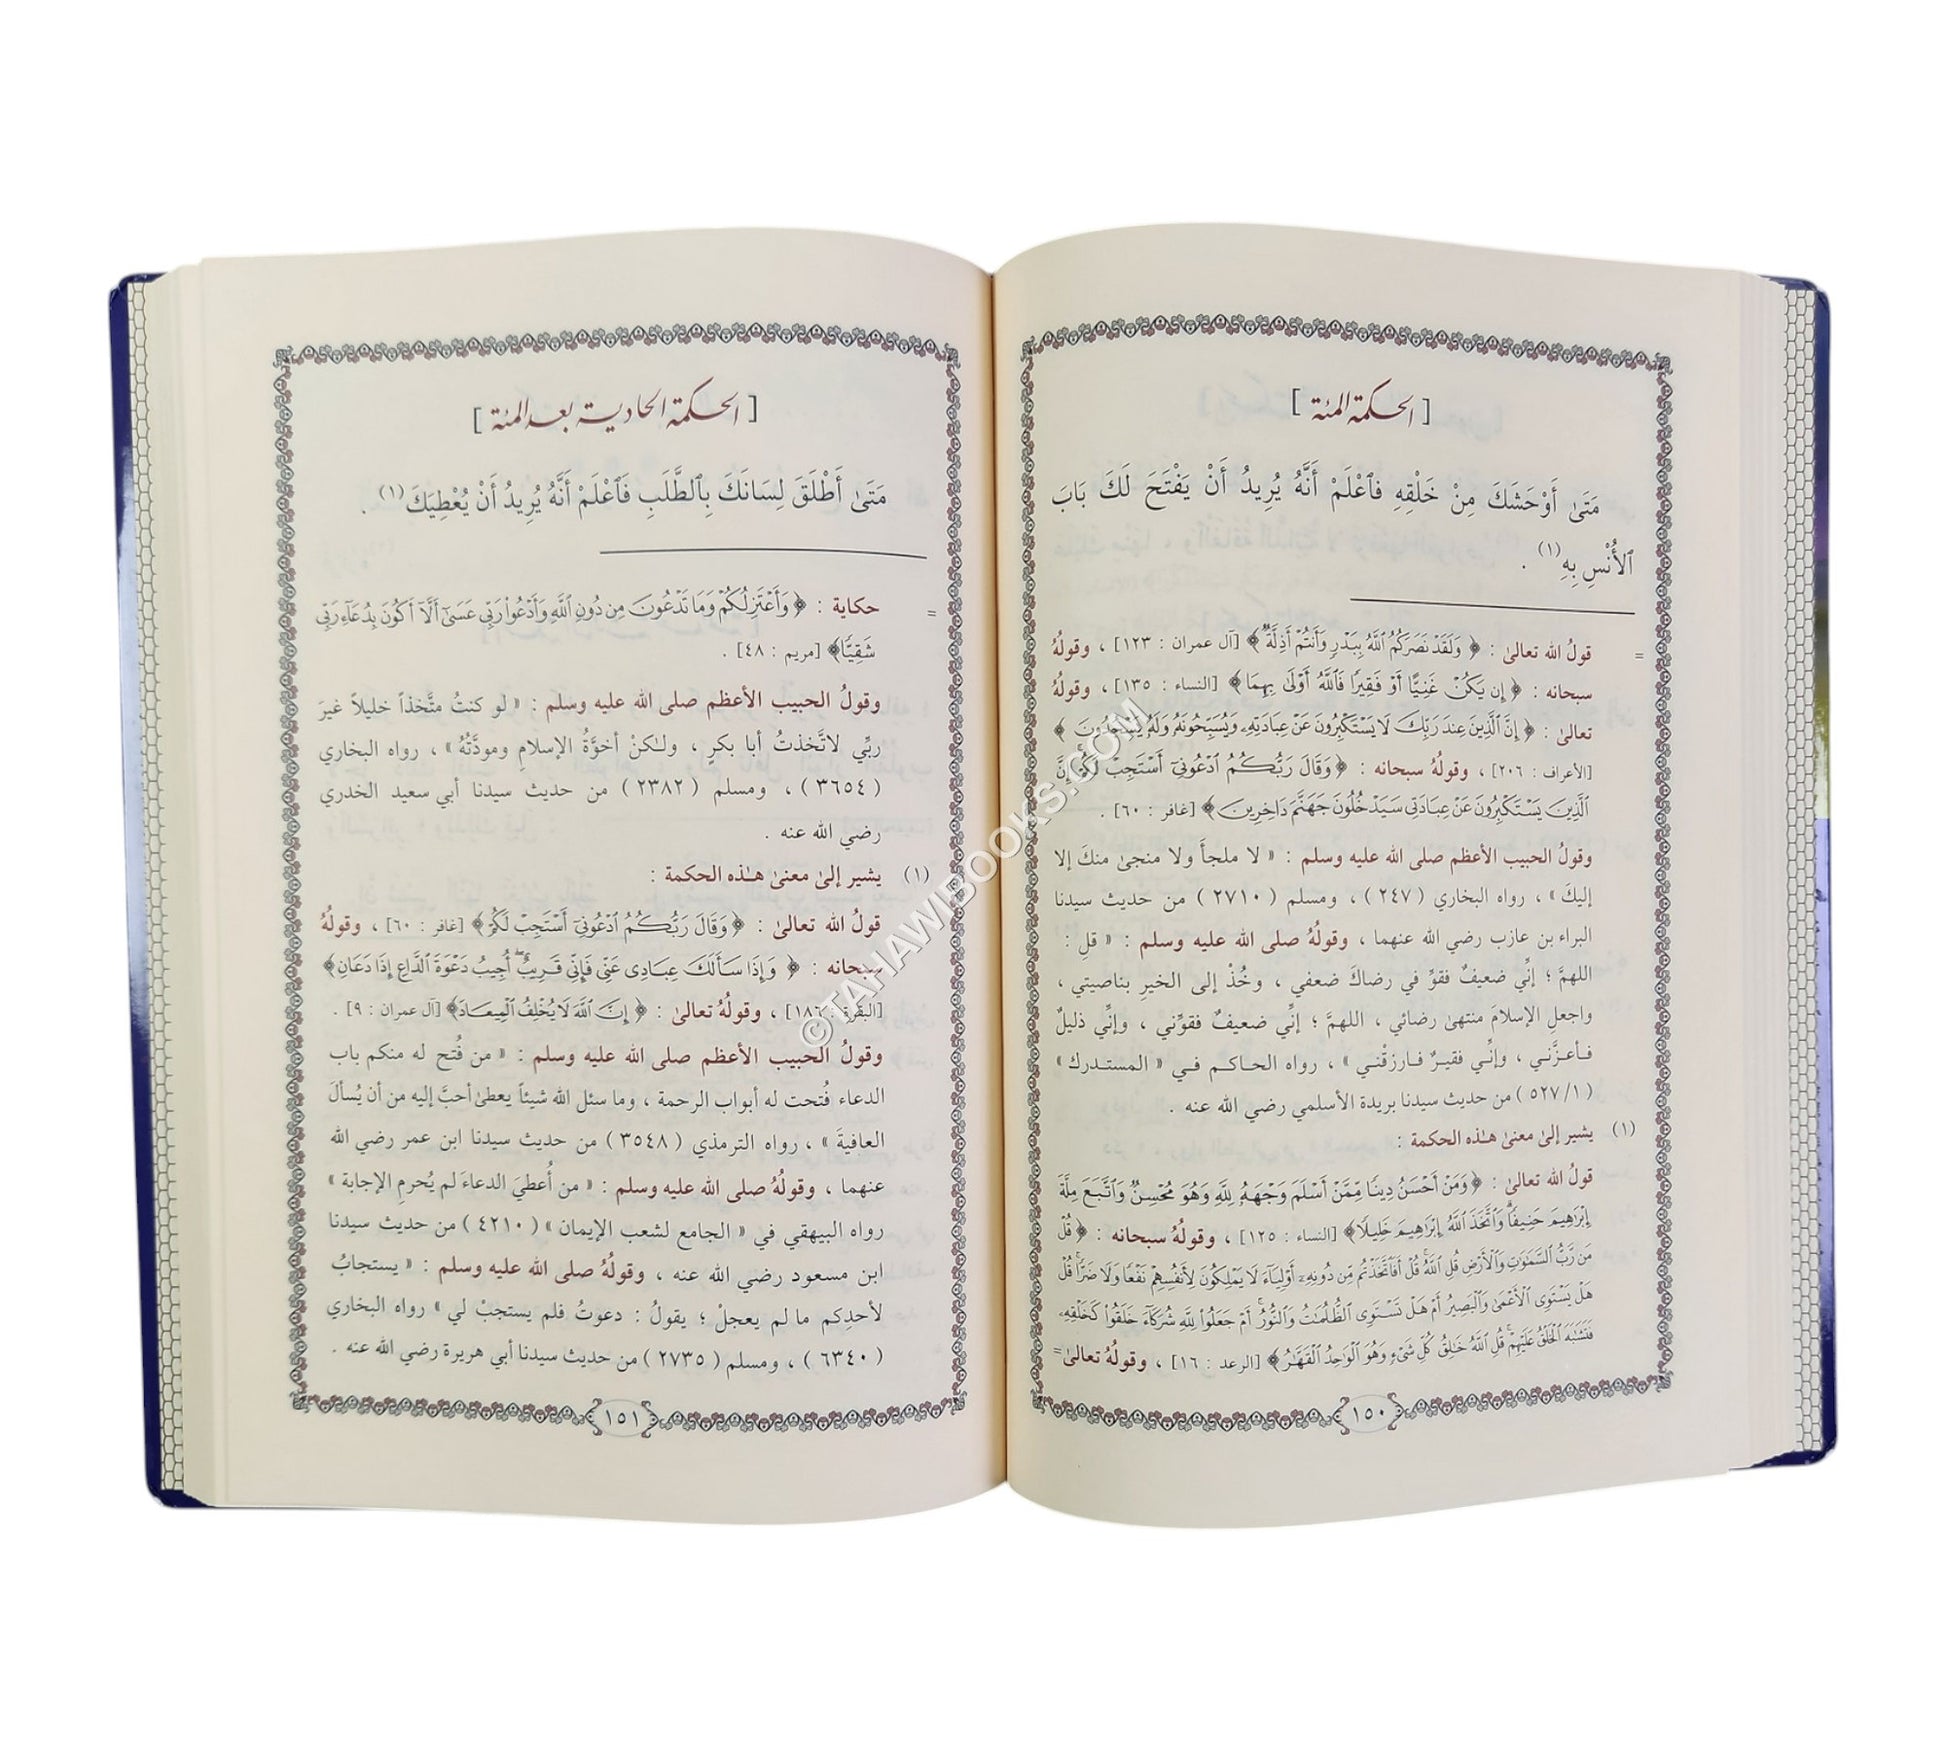 [ الحكمة المئة ]
مَتَىٰ أَوْحَشَكَ مِنْ خَلْقِهِ فَٱعْلَمْ أَنَّهُ يُرِيدُ أَنْ يَفْتَحَ لَكَ بَابَ
ٱلأُنْسِ بِهِ(١) .
= قولُ الله تعالىٰ : ﴿ وَلَقَدْ نَصَرَكُمُ ٱللَّهُ بِبَدْرٍ وَأَنتُمْ أَذِلَّةٌ ﴾ [آل عمران : ١٢٣] ، وقولُهُ
سبحانه : ﴿ إِن يَكُنْ غَنِيًّا أَوْ فَقِيرًا فَٱللَّهُ أَوْلَىٰ بِهِمَا ﴾ [النساء : ١٣٥] ، وقولُهُ
تعالىٰ : ﴿ إِنَّ ٱلَّذِينَ عِندَ رَبِّكَ لَا يَسْتَكْبِرُونَ عَنْ عِبَادَتِهِۦ وَيُسَبِّحُونَهُۥ وَلَهُۥ يَسْجُدُونَ ﴾
[الأعراف : ٢٠٦] ، وقولُهُ سبحانه : ﴿ وَقَالَ رَبُّكُمُ ٱدْعُونِىٓ أَسْتَجِبْ لَكُمْ إِنَّ
ٱلَّذِينَ يَسْتَكْبِرُونَ عَنْ عِبَادَتِى سَيَدْخُلُونَ جَهَنَّمَ دَاخِرِينَ ﴾ [غافر : ٦٠] .
وقولُ الحبيب الأعظم صلى الله عليه وسلم : « لا ملجأ ولا منجىٰ منكَ إلا
إليكَ » ، رواه البخاري ( ٢٤٧ ) ، ومسلم ( ٢٧١٠ ) من حديث سيدنا
البراء بن عازب رضي الله عنهما ، وقولُهُ صلى الله عليه وسلم : « قلِ :
اللهمَّ ؛ إنِّي ضعيفٌ فقوِّ في رضاكَ ضعفي ، وخُذْ إلى الخيرِ بناصيتي ،
واجعلِ الإسلامَ منتهىٰ رضائي ، اللهمَّ ؛ إنِّي ضعيفٌ فقوِّني ، وإنِّي ذليلٌ
فأعزَّني ، وإنِّي فقيرٌ فارزقْني » ، رواه الحاكم في « المستدرك »
( ٥٢٧/١ ) من حديث سيدنا بريدة الأسلمي رضي الله عنه .
(١) يشير إلىٰ معنىٰ هـٰذه الحكمة :
قولُ الله تعالىٰ : ﴿ وَمَنْ أَحْسَنُ دِينًا مِّمَّنْ أَسْلَمَ وَجْهَهُۥ لِلَّهِ وَهُوَ مُحْسِنٌ وَٱتَّبَعَ مِلَّةَ
إِبْرَاهِيمَ حَنِيفًا وَٱتَّخَذَ ٱللَّهُ إِبْرَاهِيمَ خَلِيلًا ﴾ [النساء : ١٢٥] ، وقولُهُ سبحانه : ﴿ قُلْ
مَن رَّبُّ ٱلسَّمَٰوَٰتِ وَٱلْأَرْضِ قُلِ ٱللَّهُ قُلْ أَفَٱتَّخَذْتُم مِّن دُونِهِۦٓ أَوْلِيَآءَ لَا يَمْلِكُونَ لِأَنفُسِهِمْ نَفْعًا وَلَا ضَرًّا قُلْ
هَلْ يَسْتَوِى ٱلْأَعْمَىٰ وَٱلْبَصِيرُ أَمْ هَلْ تَسْتَوِى ٱلظُّلُمَٰتُ وَٱلنُّورُ أَمْ جَعَلُوا۟ لِلَّهِ شُرَكَآءَ خَلَقُوا۟ كَخَلْقِهِۦ
فَتَشَٰبَهَ ٱلْخَلْقُ عَلَيْهِمْ قُلِ ٱللَّهُ خَٰلِقُ كُلِّ شَىْءٍ وَهُوَ ٱلْوَٰحِدُ ٱلْقَهَّٰرُ ﴾ [الرعد : ١٦] ، وقولُهُ تعالىٰ =
١٥٠
[ الحكمة الحادية بعد المئة ]
مَتَىٰ أَطْلَقَ لِسَانَكَ بِٱلطَّلَبِ فَٱعْلَمْ أَنَّهُ يُرِيدُ أَنْ يُعْطِيَكَ(١) .
= حكاية : ﴿ وَأَعْتَزِلُكُمْ وَمَا تَدْعُونَ مِن دُونِ ٱللَّهِ وَأَدْعُوا۟ رَبِّى عَسَىٰٓ أَلَّآ أَكُونَ بِدُعَآءِ رَبِّى
شَقِيًّا ﴾ [مريم : ٤٨] .
وقولُ الحبيب الأعظم صلى الله عليه وسلم : « لو كنتُ متَّخذاً خليلاً غيرَ
ربِّي لاتَّخذتُ أبا بكرٍ ، ولـٰكنْ أخوَّةُ الإسلامِ ومودَّتُهُ » ، رواه البخاري
( ٣٦٥٤ ) ، ومسلم ( ٢٣٨٢ ) من حديث سيدنا أبي سعيد الخدري
رضي الله عنه .
(١) يشير إلىٰ معنىٰ هـٰذه الحكمة :
قولُ الله تعالىٰ : ﴿ وَقَالَ رَبُّكُمُ ٱدْعُونِىٓ أَسْتَجِبْ لَكُمْ ﴾ [غافر : ٦٠] ، وقولُهُ
سبحانه : ﴿ وَإِذَا سَأَلَكَ عِبَادِى عَنِّى فَإِنِّى قَرِيبٌ أُجِيبُ دَعْوَةَ ٱلدَّاعِ إِذَا دَعَانِ ﴾
[البقرة : ١٨٦] ، وقولُهُ تعالىٰ : ﴿ إِنَّ ٱللَّهَ لَا يُخْلِفُ ٱلْمِيعَادَ ﴾ [آل عمران : ٩] .
وقولُ الحبيب الأعظم صلى الله عليه وسلم : « من فُتح له منكم باب
الدعاء فُتحت له أبواب الرحمة ، وما سئل الله شيئاً يعطىٰ أحبَّ إليه من أن يُسألَ
العافيةَ » ، رواه الترمذي ( ٣٥٤٨ ) من حديث سيدنا ابن عمر رضي الله
عنهما ، وقولُهُ صلى الله عليه وسلم : « من أُعطيَ الدعاءَ لم يُحرمِ الإجابة »
رواه البيهقي في « الجامع لشعب الإيمان » ( ٤٢١٠ ) من حديث سيدنا
ابن مسعود رضي الله عنه ، وقولُهُ صلى الله عليه وسلم : « يستجابُ
لأحدِكم ما لم يعجلْ ؛ يقولُ : دعوتُ فلم يستجبْ لي » رواه البخاري
( ٦٣٤٠ ) ، ومسلم ( ٢٧٣٥ ) من حديث سيدنا أبي هريرة رضي الله عنه .
١٥١
©TAHAWIBOOKS.COM